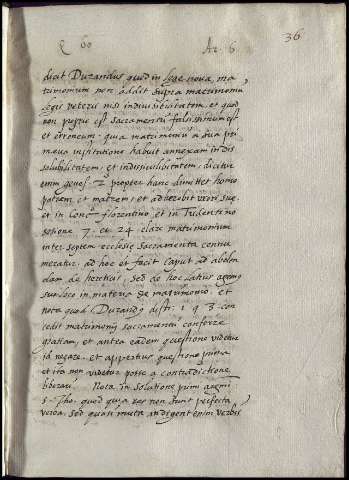 Q 60 Ar. 6. 36
dicit Durandus quod in lege nova, ma
trimonium non addit supra matrimoniu
legis veteris nisi indivisibilitatem. et quod
non proprie est sacramentu falsissimum est
et erroneum. quia matrimoniu a sua pri
meva institutione habuit annexam indis
solubilitatem, et indivisibilitatem, dicitur
enim genes. 2 propter hanc dimittet homo
patrem et matrem, et adherebit uxori sue.
et in Conc. florentino, et in Tridentino
sesione 7. et 24 clare matrimonium
inter septem ecclesie sacramenta connu
meratur. ad hoc et facit caput ad abolen
dam de hereticis, sed de hoc latius agemus
suo loco in materia de matrimonio. et
nota quod Durandus disti. 1 q 3 con
cedit matrimonij sacramentu conferre
gratiam, et antea eadem questione videtur
id negare. et apertius questione prima
et ita non videtur posse a contradictione
liberari. Nota in solutione primi argumenti
s. Tho. quod quia res non sunt perfecta
verba, sed quasi muta indigent enim verbis